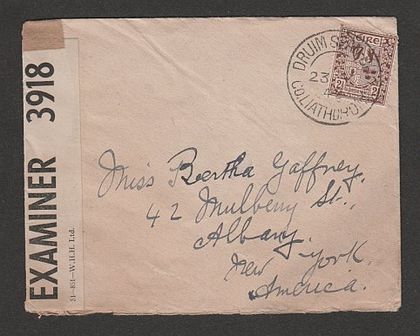 EXAMINER 3918
51-851-W.H.H. Ltd.
DRUIM
23
CO. LIATHDROMA
ÉIRE
2½
Miss Bertha Gaffney.
42 Mulberry St.,
Albany.
New York.
America.